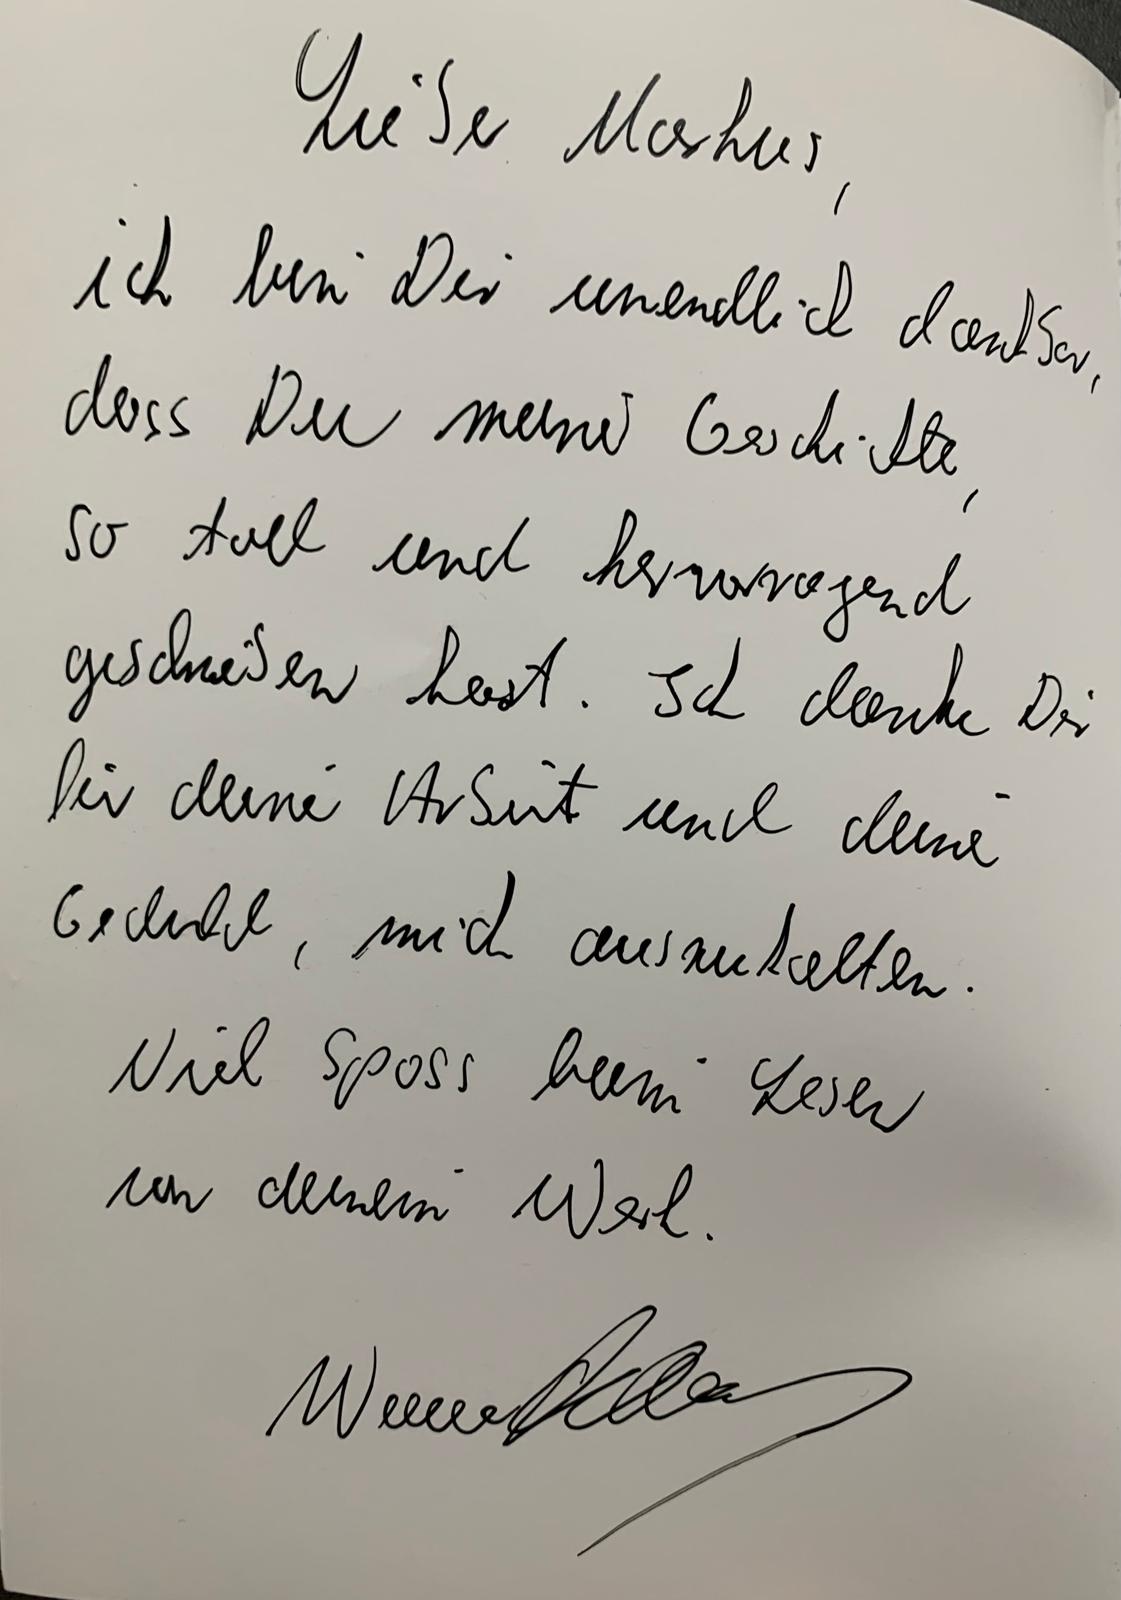 Lieber Markus,
ich bin Dir unendlich dankbar,
dass Du meine Geschichte,
so toll und hervorragend
geschrieben hast. Ich danke Dir
für deine Arbeit und deine
Geduld, mich auszuhalten.
Viel Spass beim Lesen
von deinem Werk.